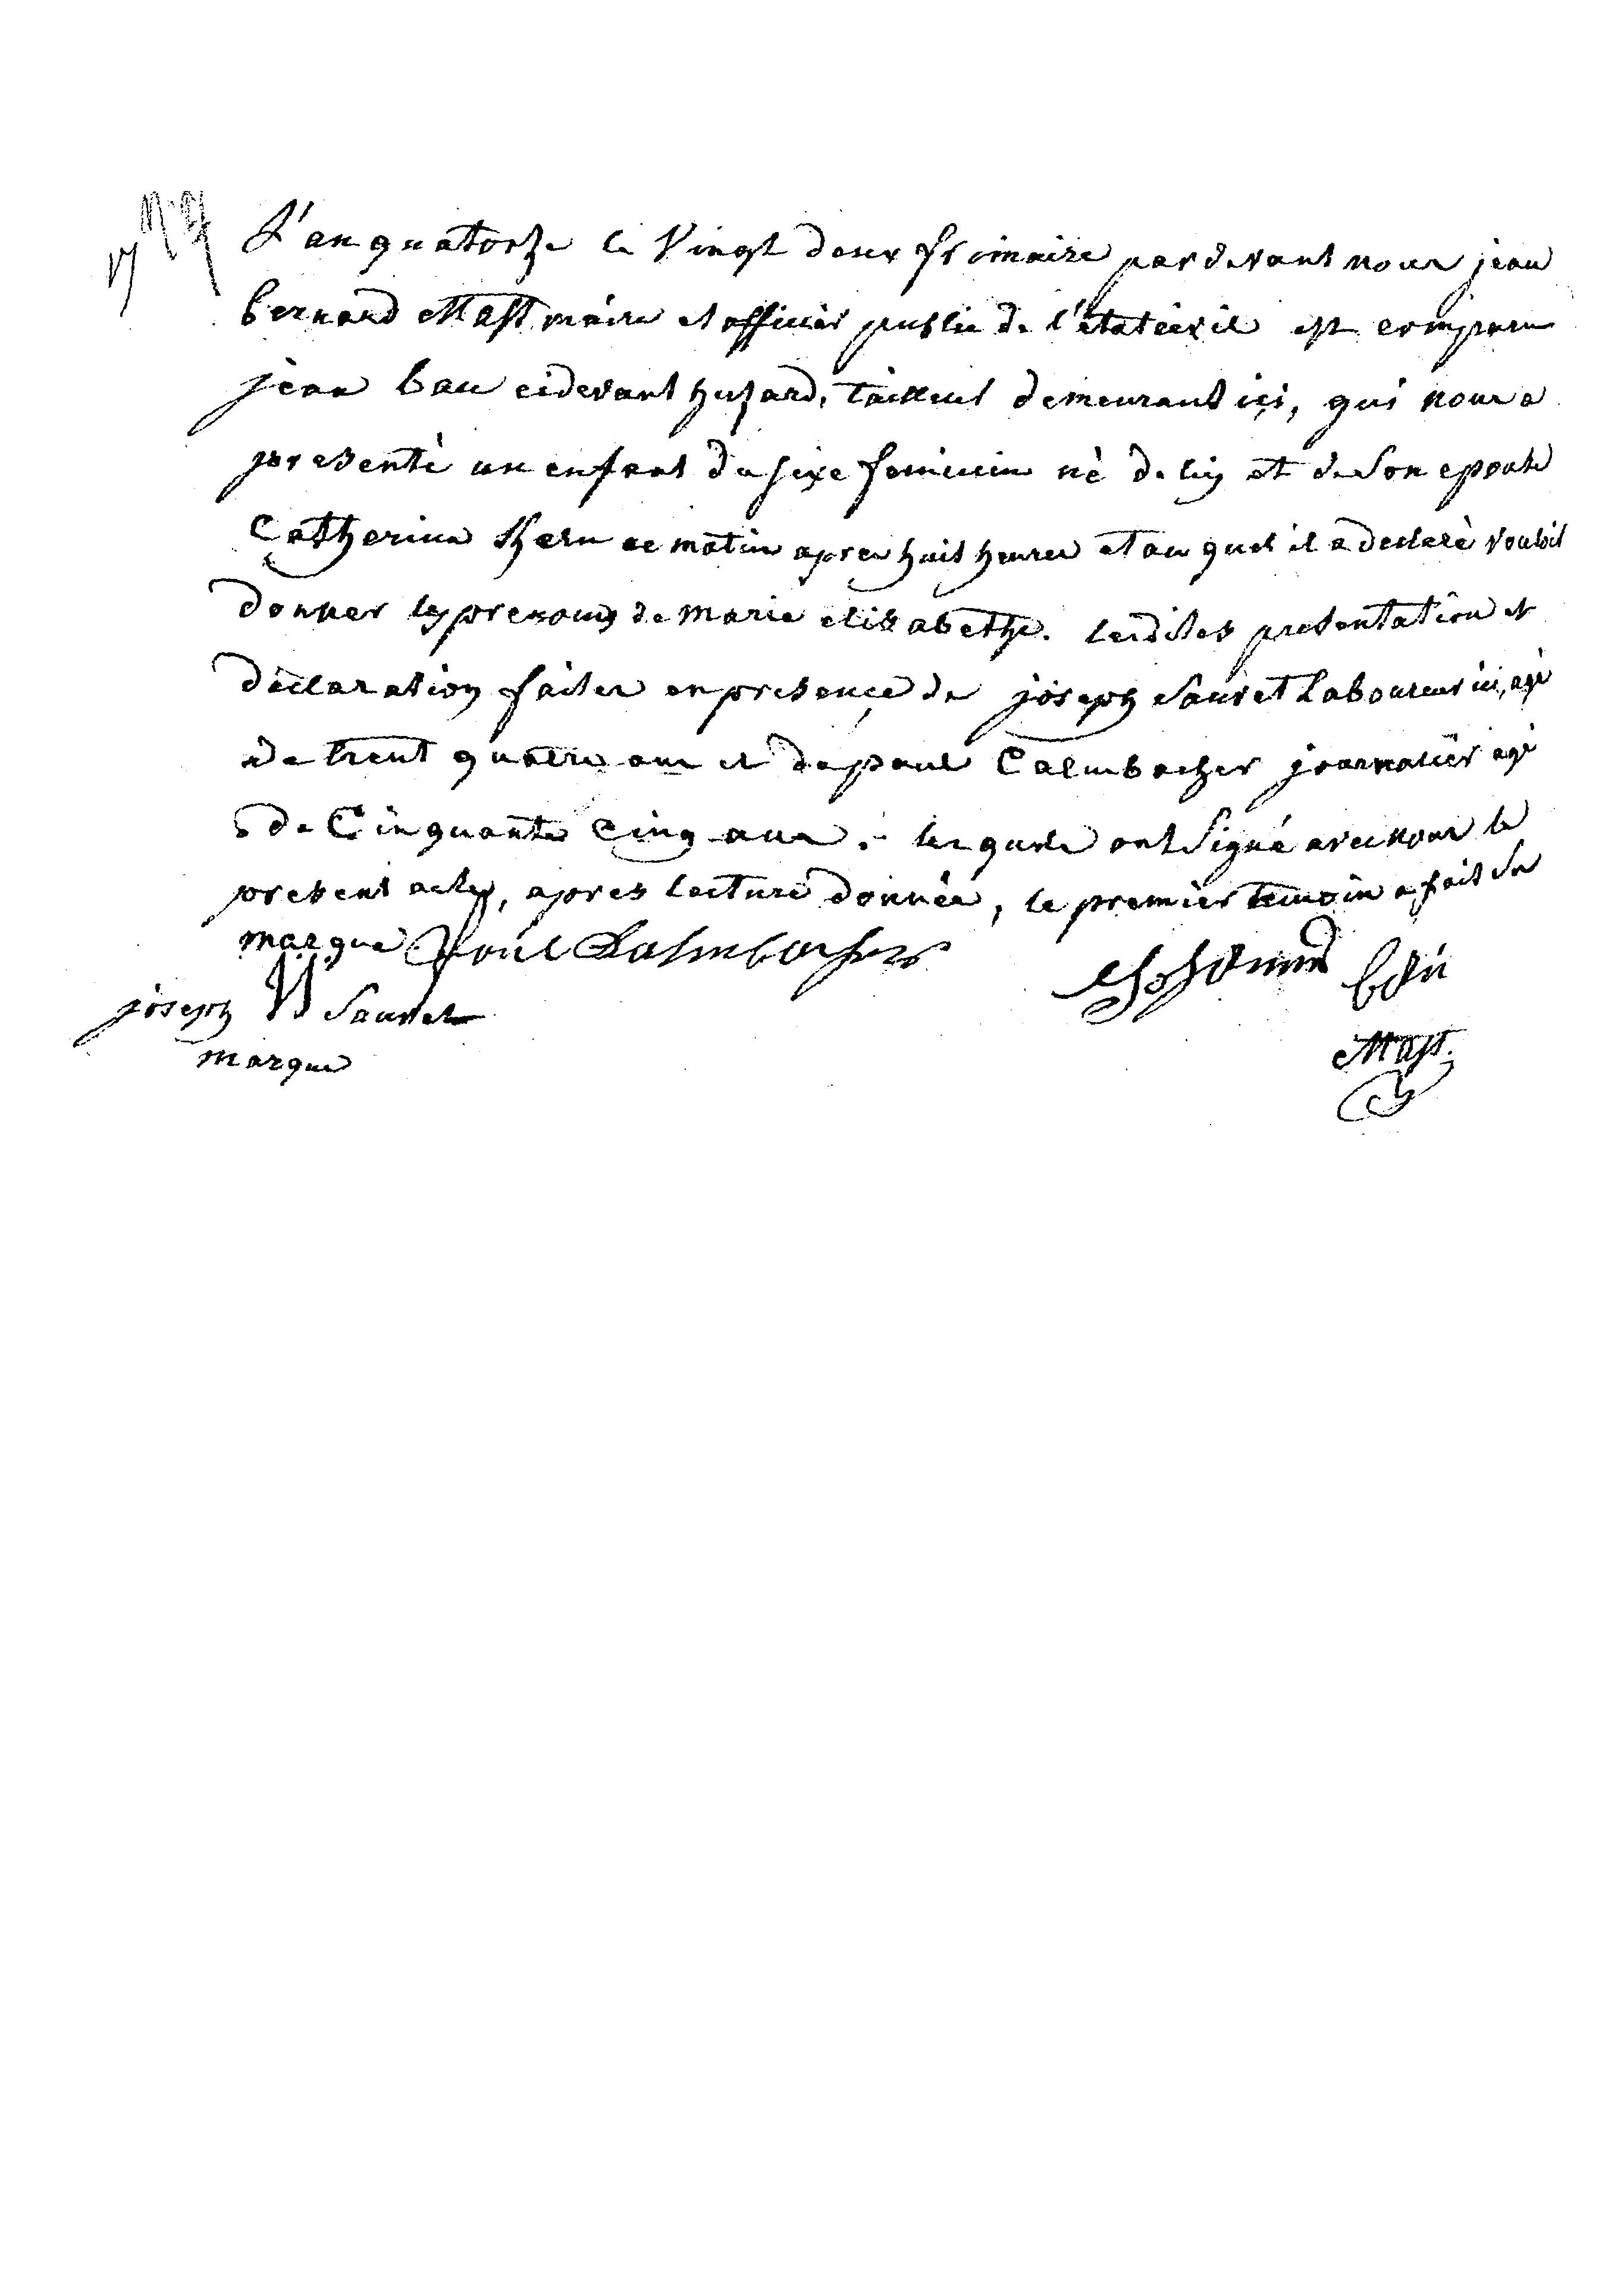 L'an quatorze le Vingt deux frimaire pardevant nous jean
bernard Mast maire et officier public de l'état civil est comparu
jean bau cidevant husard, tailleur demeurant içi, qui nous a
presenté un enfant du sexe feminin né de luy et de son epouse
Catherine Kern ce matin apres huit heures et au quel il a declaré vouloir
donner les prenoms de marie elisabethe. lesdites presentation et
déclaration faites en presençe de joseph Sauret Laboureur ici, agé
de trent quatre ans et de paul Calmbacher journalier agé
de Cinquante Cinq ans. lesquels ont signé avec nous le
present acte, apres lecture donnée, le premier temoin a fait sa
marque Paul Kalmbacher
Johann bau
joseph Sauret
marque
Mast.